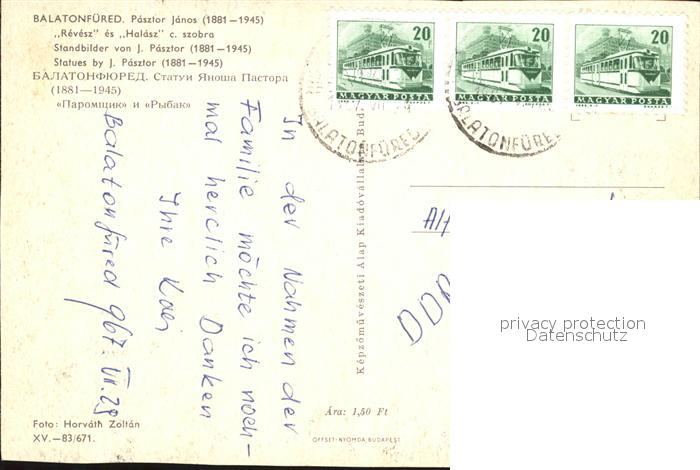 BALATONFÜRED. Pásztor János (1881—1945)
„Révész” és „Halász” c. szobra
Standbilder von J. Pásztor (1881—1945)
Statues by J. Pásztor (1881—1945)
БАЛАТОНФЮРЕД. Статуи Яноша Пастора
(1881—1945)
«Паромщик» и «Рыбак»
20
MAGYAR POSTA
20
MAGYAR POSTA
20
MAGYAR POSTA
BALATONFÜRED
BALATONFÜRED
In der Nahmen der
Familie möchte ich noch-
mal herlich Danken
Ihre
Balatonfüred 967. VI. 29
Képzőművészeti Alap Kiadóvállalata, Budapest
DDR
privacy protection
Datenschutz
Ára: 1,50 Ft
Foto: Horváth Zoltán
XV.—83/671.
OFFSET-NYOMDA, BUDAPEST